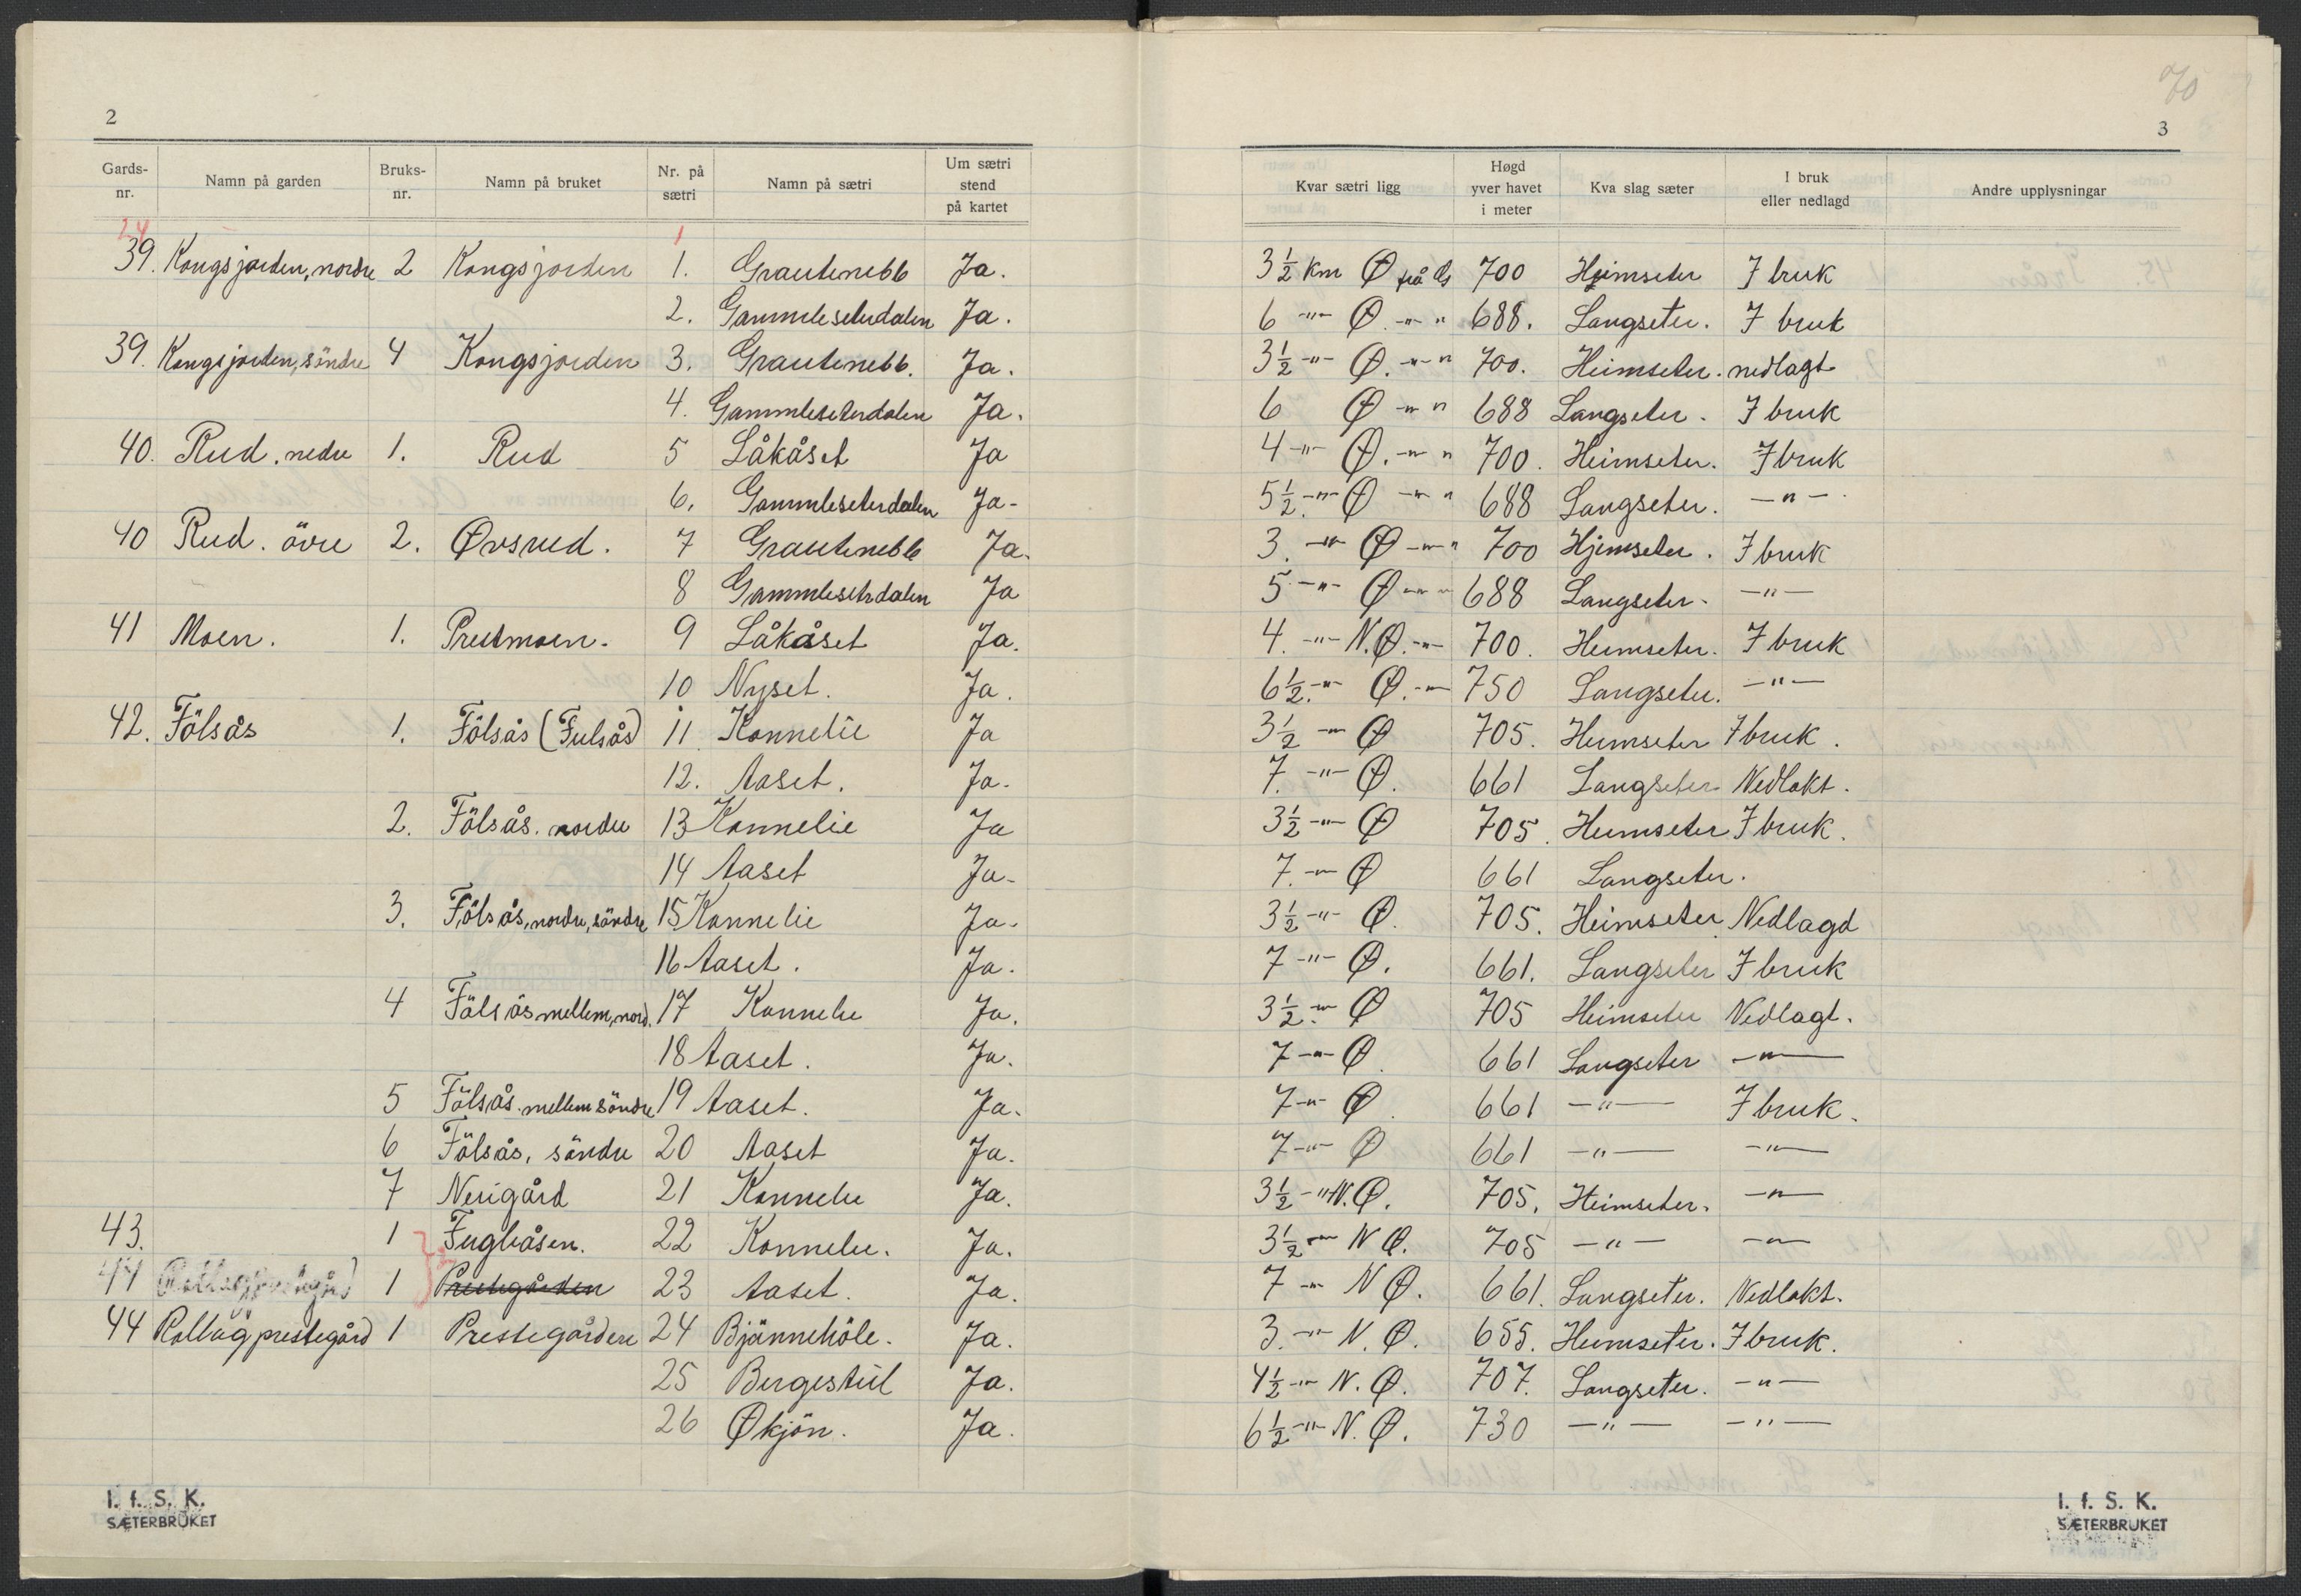 2
Gards-nr. Namn på garden Bruks-nr. Namn på bruket Nr. på sætri Namn på sætri Um sætri stend på kartet
24 1
39. Kongsjorden, nordre 2 Kongsjorden 1. Grautenebb Ja.
2. Gammleseterdalen Ja.
39. Kongsjorden, söndre 4 Kongsjorden 3. Grautenebb. Ja.
4. Gammleseterdalen Ja.
40. Rud. nedre 1. Rud 5 Låkåset Ja
6. Gammleseterdalen Ja-
40 Rud. övre 2. Øvsrud. 7 Grautenebb Ja.
8 Gammleseterdalen Ja
41 Moen. 1. Prestmoen. 9 Låkåset Ja.
10 Nyset. Ja.
42. Fölsås 1. Fölsås (Fulsås) 11 Konnelie Ja
12. Aaset. Ja.
2. Fölsås. nordre 13 Konnelie Ja
14 Aaset Ja-
3. Fölsås, nordre, söndre 15 Konnelie Ja-
16 Aaset. Ja.
4 Fölsås mellem, nord. 17 Konnelie Ja.
18 Aaset. Ja.
5 Fölsås. mellem söndre 19 Aaset. Ja.
6 Fölsås, söndre 20 Aaset Ja.
7 Nerigård 21 Konnelie Ja.
43. 1 Fugleåsen. 22 Konnelie. Ja.
44 Rollag prestegård 1 Prestegården 23 Aaset. Ja.
44 Rollag prestegård 1 Prestegården 24 Bjännehöle. Ja.
25 Bergestul Ja.
26 Økjön. Ja.
I. f. S. K.
SÆTERBRUKET
70
3
Kvar sætri ligg Høgd yver havet i meter Kva slag sæter I bruk eller nedlagd Andre upplysningar
3 1/2 km Ø frå G 700 Heimseter I bruk
6 -"- Ø. -"- " 688. Langseter. I bruk
3 1/2 -"- Ø. -"- " 700. Heimseter. nedlagt
6 Ø -"- " 688 Langseter. I bruk
4 -"- Ø. -"- " 700. Heimseter. I bruk
5 1/2. -"- Ø -"- " 688 Langseter. -"-
3. -"- Ø -"- " 700 Hjemseter. I bruk
5 -"- Ø -"- " 688 Langseter. -"-
4. -"- N.Ø. -"- 700. Heimseter. I bruk
6 1/2. -"- Ø. -"- 750 Langseter. -"-
3 1/2 -"- Ø 705. Heimseter I bruk.
7. -"- Ø. 661 Langseter Nedlakt.
3 1/2 -"- Ø 705. Heimseter I bruk.
7. -"- Ø 661 Langseter.
3 1/2 -"- Ø. 705. Heimseter Nedlagd
7 -"- Ø. 661. Langseter I bruk
3 1/2. -"- Ø 705 Heimseter Nedlagt.
7 -"- Ø. 661 Langseter -"-
7 -"- Ø. 661 -"- I bruk.
7 -"- Ø 661 -"- -"-
3 1/2 -"- N.Ø. 705. Heimseter. -"-
3 1/2 -"- N Ø. 705 -"- -"-
7 -"- N Ø. 661. Langseter. Nedlakt.
3. -"- N. Ø. 655. Heimseter. I bruk.
4 1/2 -"- N. Ø. 707. Langseter. -"-
6 1/2 -"- N. Ø. 730 -"- -"-
I. f. S. K.
SÆTERBRUKET